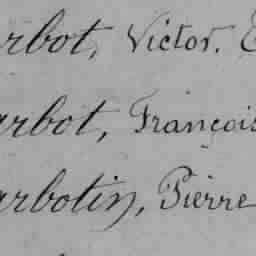 arbot, Victor. E
arbot, François
arbotin, Pierre